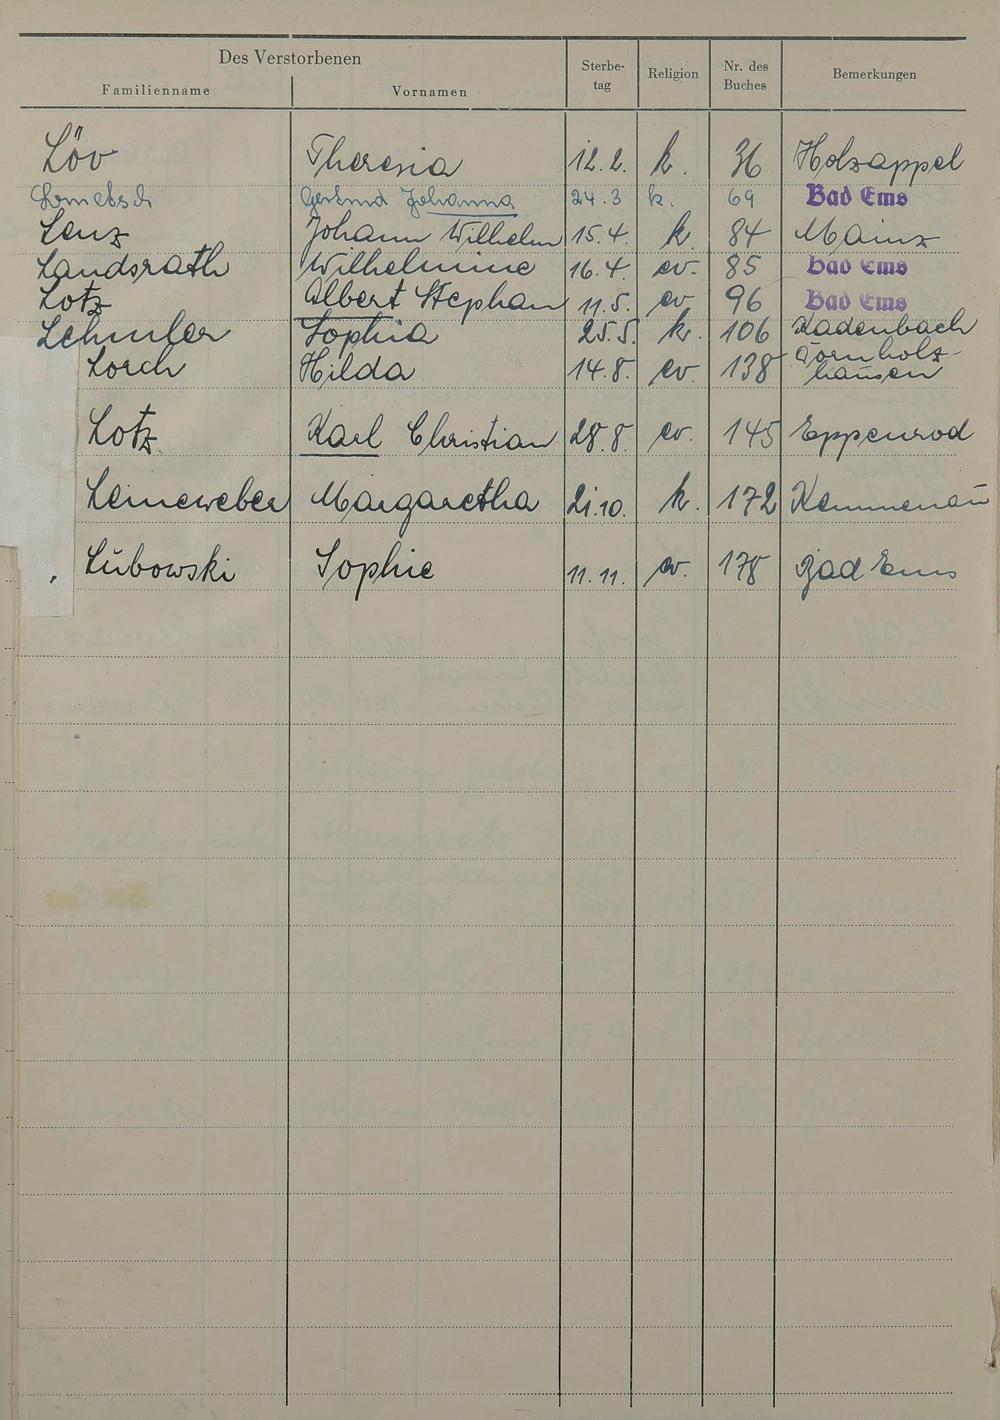 Des Verstorbenen
Familienname Vornamen Sterbe-tag Religion Nr. des Buches Bemerkungen
Löv Theresia 12.2. k. 36 Holzappel
Lometsch Gertrud Johanna 24.3 k. 69 Bad Ems
Lenz Johann Wilhelm 15.4. k. 84 Mainz
Landsrath Wilhelmine 16.4. ev. 85 Bad Ems
Lotz Albert Stephan 11.5. ev 96 Bad Ems
Lehmler Sophia 25.5. k. 106 Kadenbach
Lorch Hilda 14.8. ev. 138 Dörnholz-
hausen
Lotz Karl Christian 28.8. ev. 145 Eppenrod
Leineweber Margaretha 21.10. k. 172 Kemmenau
Lubowski Sophie 11.11. ev. 178 Bad Ems